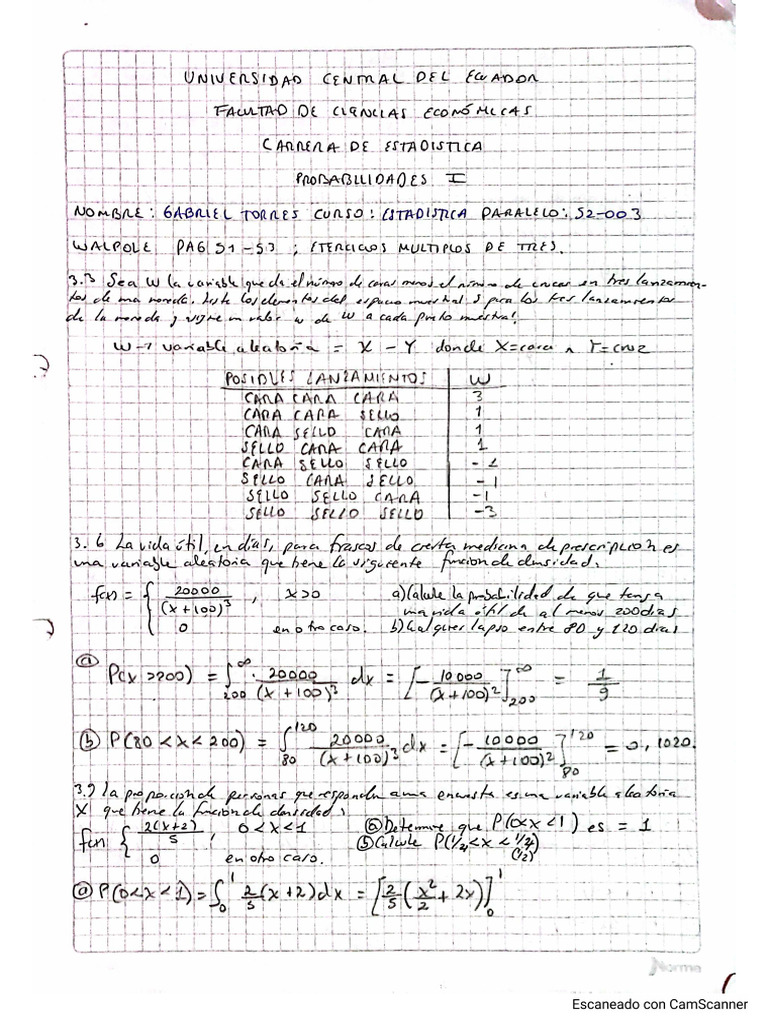 UNIVERSIDAD CENTRAL DEL ECUADOR
FACULTAD DE CIENCIAS ECONÓMICAS
CARRERA DE ESTADISTICA
PROBABILIDADES I
NOMBRE: GABRIEL TORRES CURSO: ESTADISTICA PARALELO: S2-003
WALPOLE PAG 51-53; EJERCICIOS MULTIPLOS DE TRES.
3.3 Sea W la variable que da el número de caras menos el número de cruces en tres lanzamien-
tos de una moneda. Liste los elementos del espacio muestral S para los tres lanzamientos
de la moneda y asigne un valor w de W a cada punto muestral.
W → variable aleatoria = X - Y donde X=cara ∧ Y=cruz
POSIBLES LANZAMIENTOS W
CARA CARA CARA 3
CARA CARA SELLO 1
CARA SELLO CARA 1
SELLO CARA CARA 1
CARA SELLO SELLO -1
SELLO CARA SELLO -1
SELLO SELLO CARA -1
SELLO SELLO SELLO -3
3.6 La vida útil, en días, para frascos de cierta medicina de prescripción es
una variable aleatoria que tiene la siguiente función de densidad.
f(x) = { 20000/(x+100)³ , x>0 a) Calcule la probabilidad de que tenga
una vida útil de al menos 200 dias
0 en otro caso. b) Cualquier lapso entre 80 y 120 dias
ⓐ P(x >200) = ∫₂₀₀^∞ 20000/(x+100)³ dx = [-10000/(x+100)²]₂₀₀^∞ = 1/9
ⓑ P(80<x<200) = ∫₈₀^120 20000/(x+100)³ dx = [-10000/(x+100)²]₈₀^120 = 0,1020.
3.9 La proporcion de personas que responden a una encuesta es una variable aleatoria
X que tiene la funcion de densidad:
f(x) { 2(x+2)/5 , 0<x<1 ⓐ Determine que P(0<x<1) es = 1
0 en otro caso. ⓑ Calcule P(1/4<x<1/2)
(1/2)
ⓐ P(0<x<1) = ∫₀¹ 2/5 (x+2)dx = [2/5 (x²/2 + 2x)]₀¹
Norma
Escaneado con CamScanner